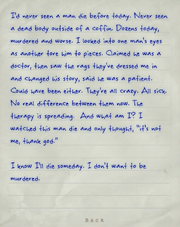 I'd never seen a man die before today. Never seen
a dead body outside of a coffin. Dozens today,
murdered and worse. I looked into one man's eyes
as another tore him to pieces. Claimed he was a
doctor, then saw the rags they've dressed me in
and changed his story, said he was a patient.
Could have been either. They're all crazy. All sick.
No real difference between them now. The
therapy is spreading. And what am I? I
watched this man die and only thought, "it's not
me, thank god."
I know I'll die someday. I don't want to be
murdered.
Back